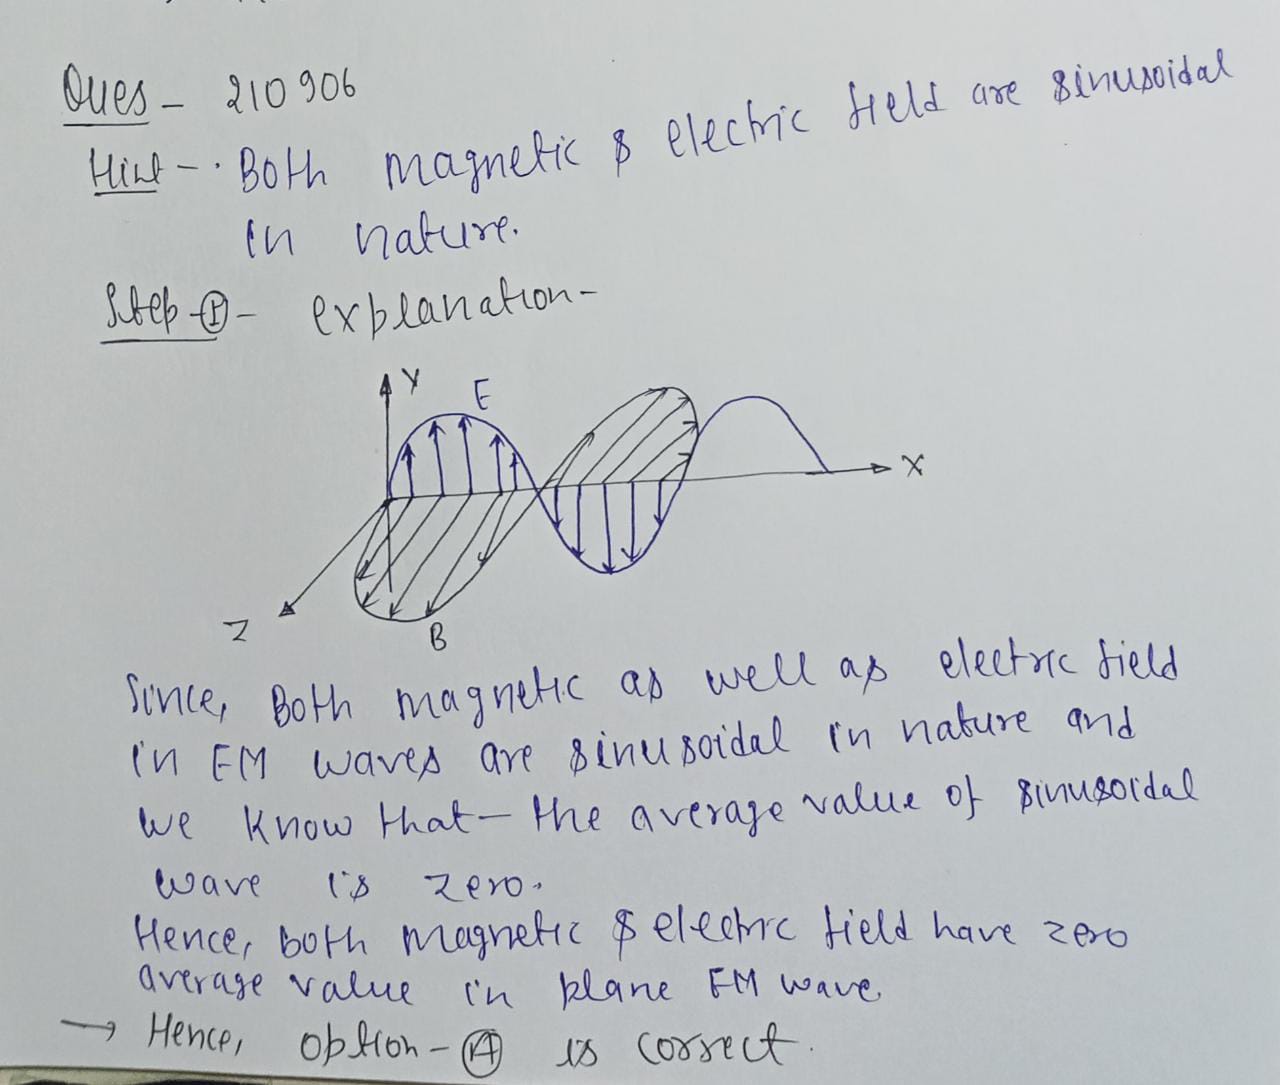 Ques - 210906
Hint - · Both magnetic & electric field are sinusoidal
in nature.
Step-① - explanation-
Y
E
X
Z
B
Since, Both magnetic as well as electric field
in EM waves are sinusoidal in nature and
we know that - the average value of sinusoidal
wave is zero.
Hence, both magnetic & electric field have zero
average value in plane EM wave.
→ Hence, option - Ⓐ is correct.